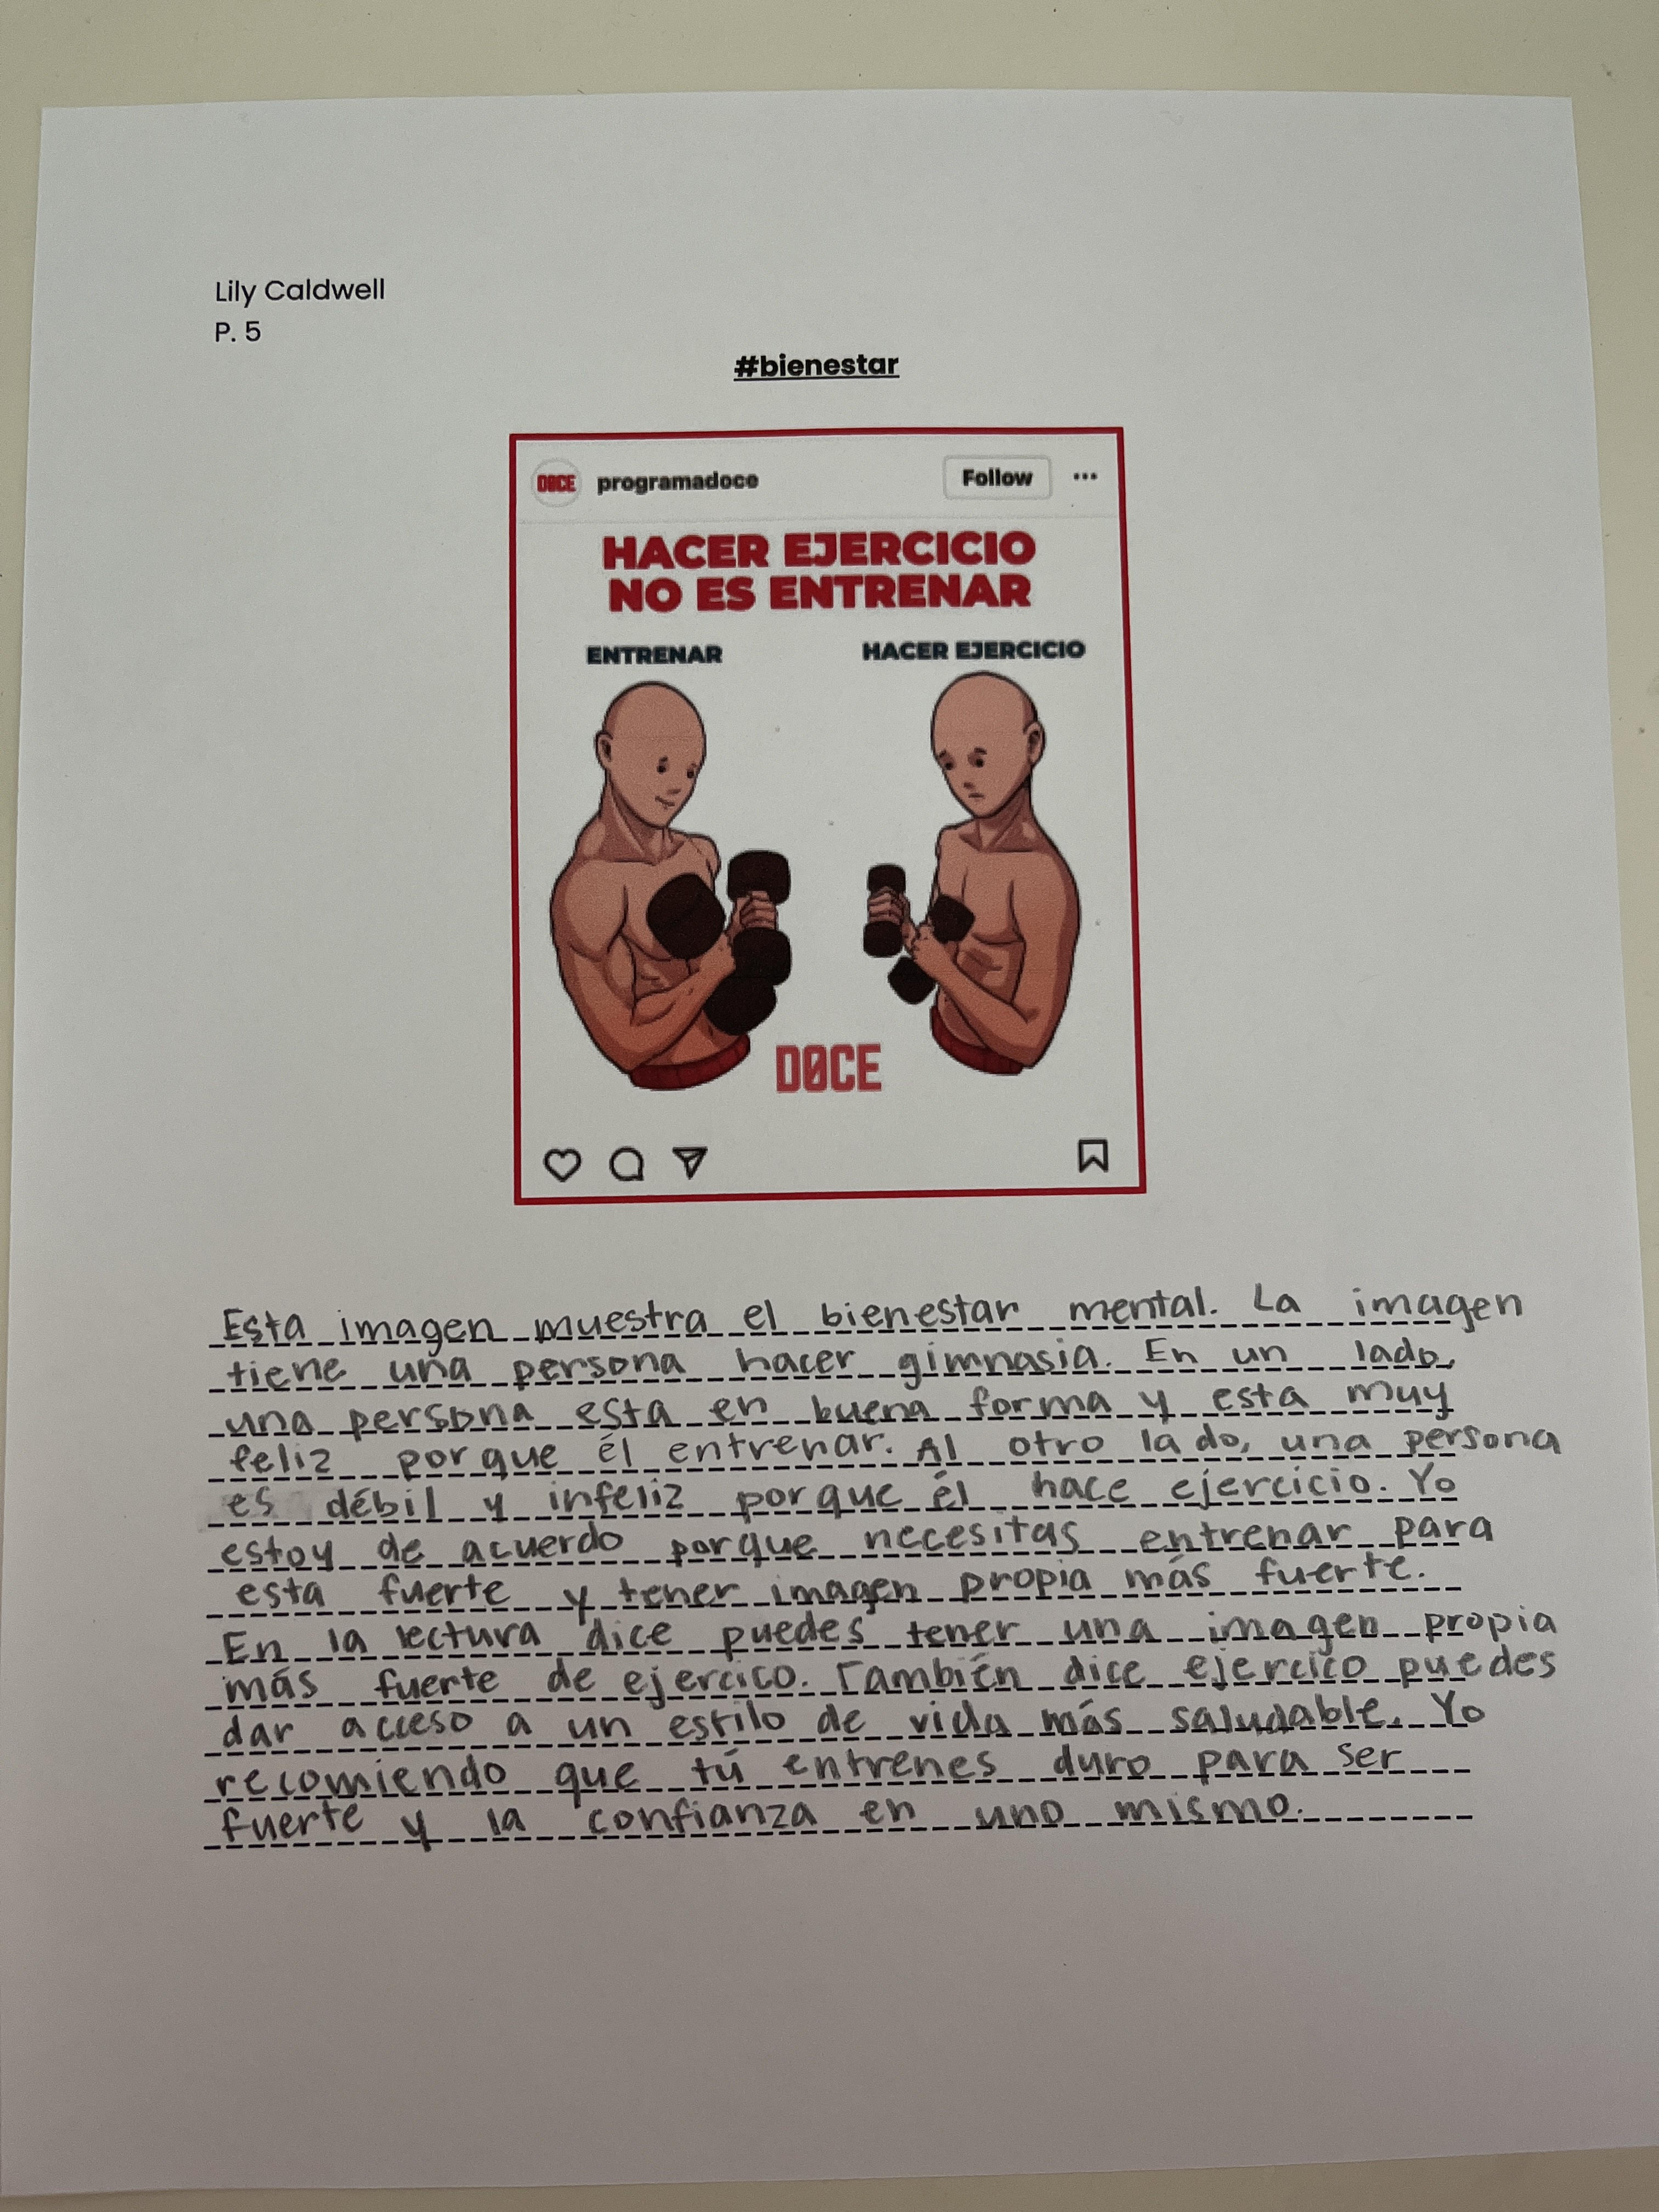 Lily Caldwell
P. 5
#bienestar
DOCE programadoce Follow ...
HACER EJERCICIO
NO ES ENTRENAR
ENTRENAR HACER EJERCICIO
DØCE
Esta imagen muestra el bienestar mental. La imagen
tiene una persona hacer gimnasia. En un lado,
una persona esta en buena forma y esta muy
feliz porque él entrenar. Al otro lado, una persona
es débil y infeliz porque él hace ejercicio. Yo
estoy de acuerdo porque necesitas entrenar para
esta fuerte y tener imagen propia más fuerte.
En la lectura dice puedes tener una imagen propia
más fuerte de ejercico. También dice ejercico puedes
dar acceso a un estilo de vida más saludable. Yo
recomiendo que tú entrenes duro para ser
fuerte y la confianza en uno mismo.